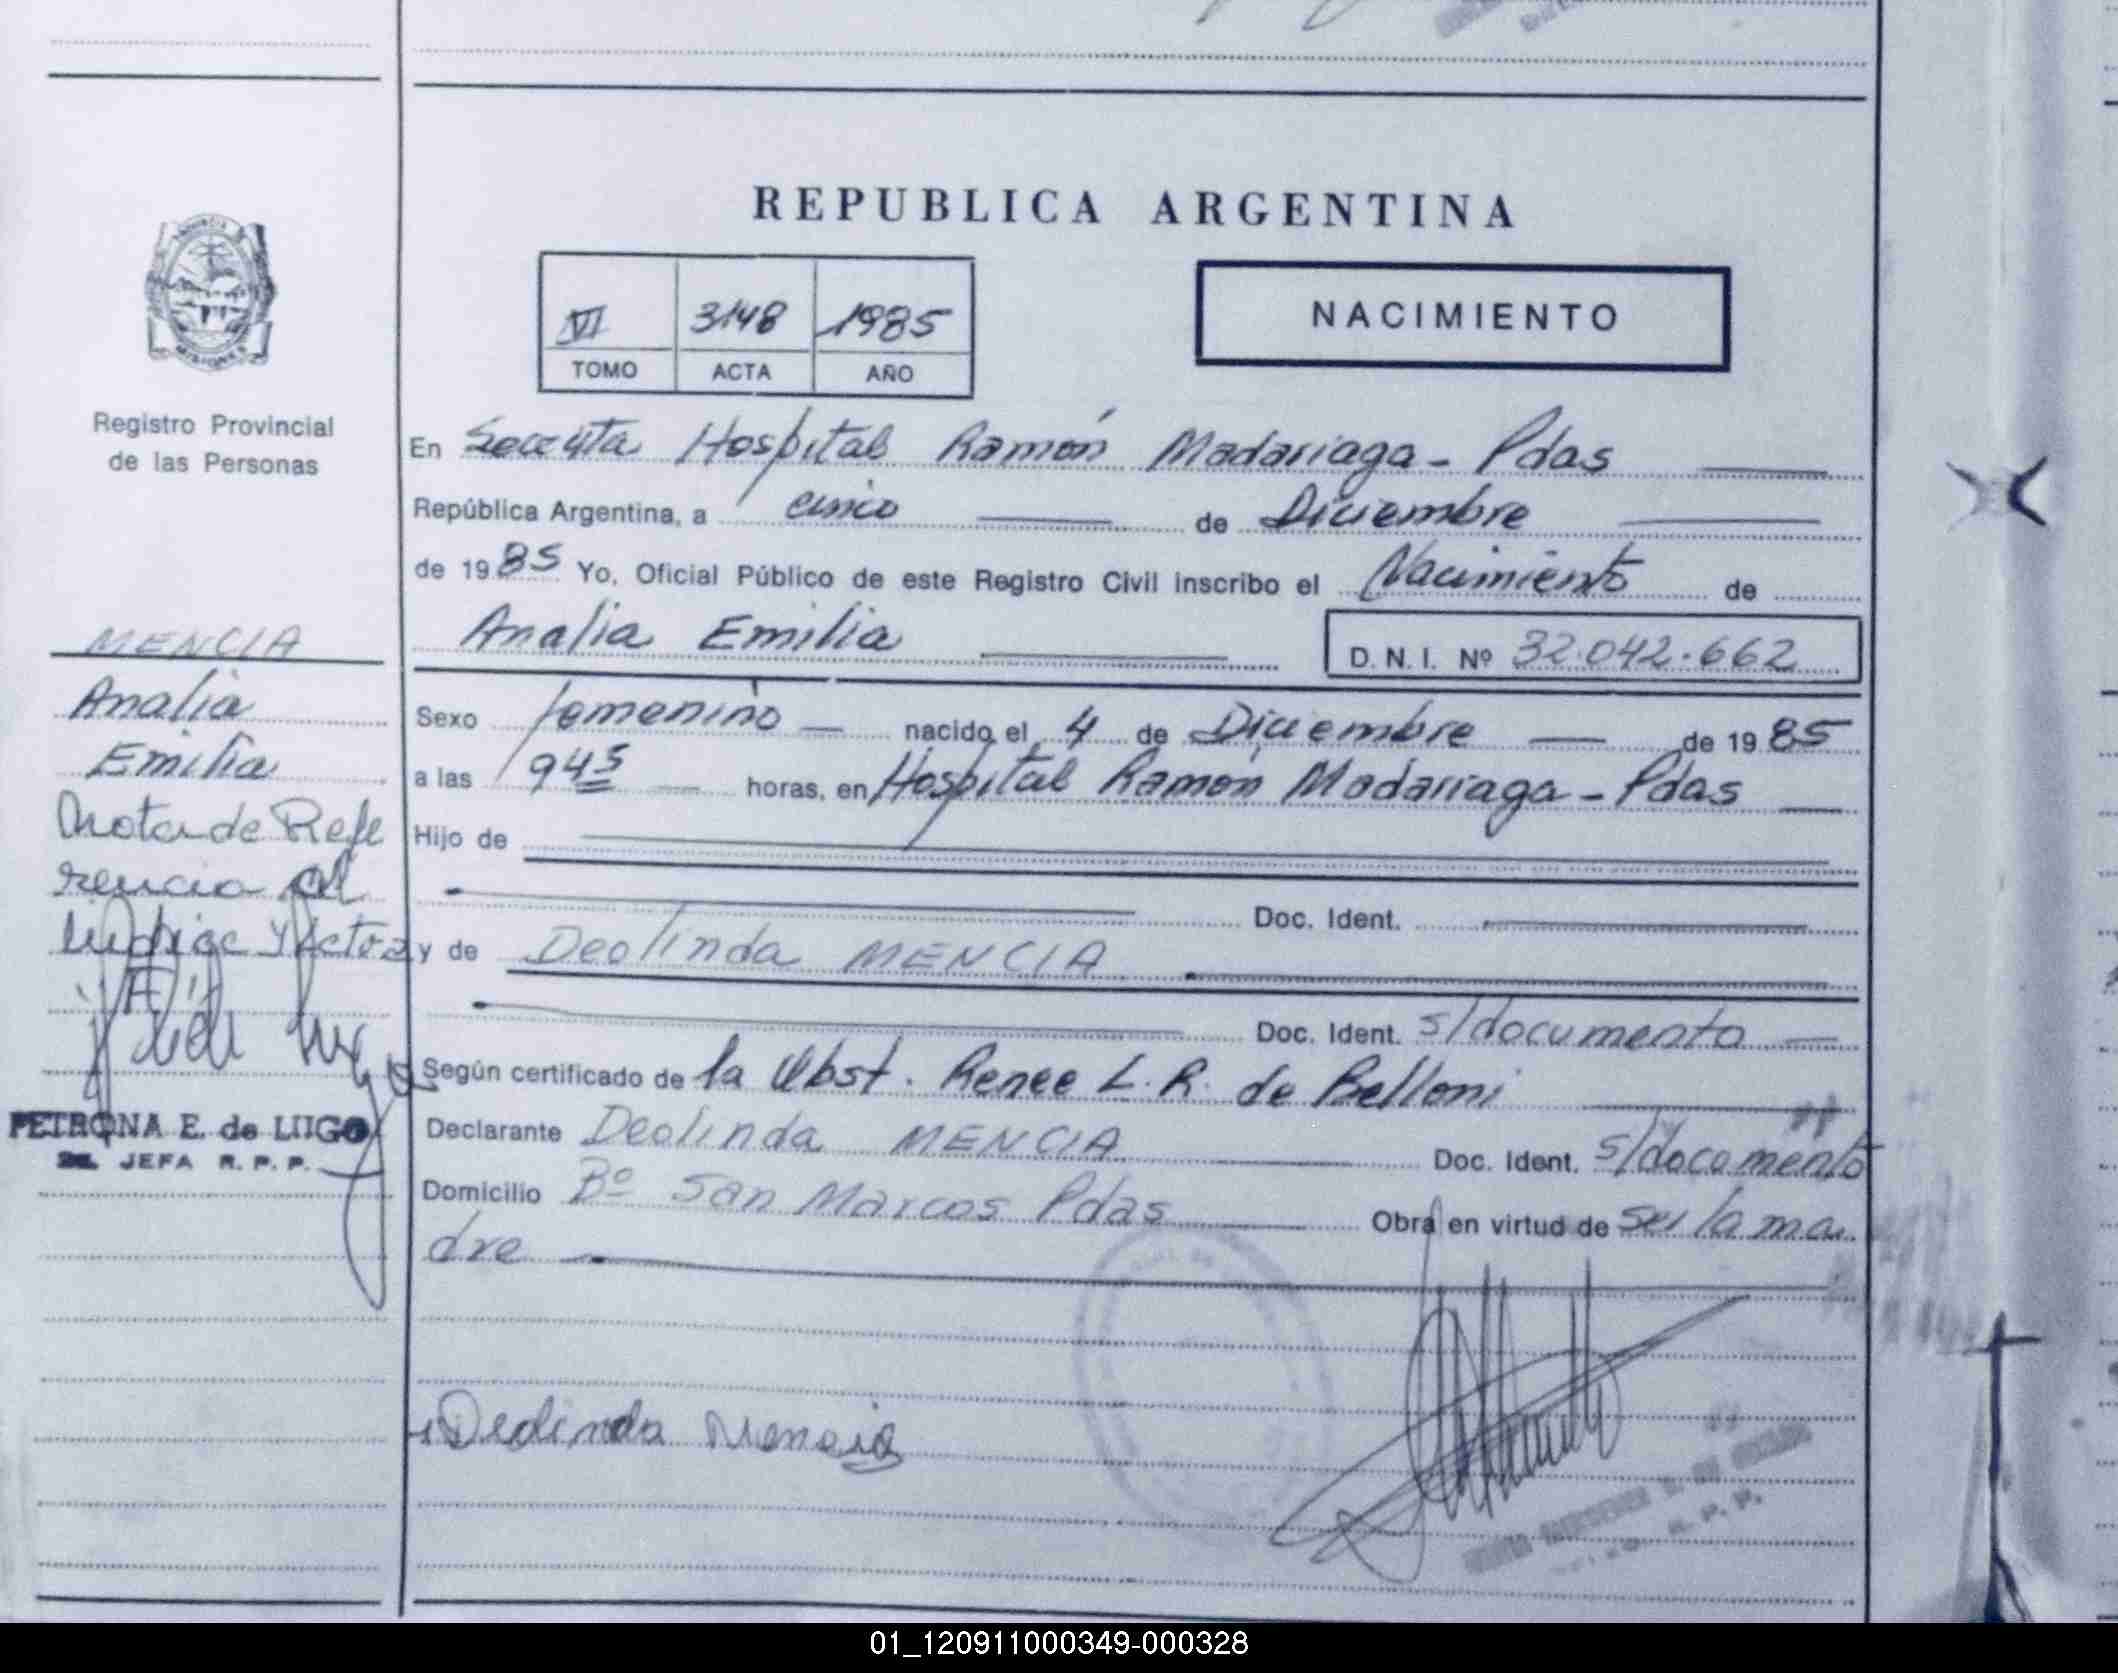 REPUBLICA ARGENTINA
VI 3148 1985
TOMO ACTA AÑO
NACIMIENTO
Registro Provincial
de las Personas
En Hospital Ramón Madariaga - Pdas
República Argentina, a cinco de Diciembre
de 1985 Yo, Oficial Público de este Registro Civil inscribo el Nacimiento de
Analia Emilia
D. N. I. Nº 32.042.662
Sexo femenino nacido el 4 de Diciembre de 1985
a las 945 horas, en Hospital Ramón Madariaga - Pdas
Hijo de
Doc. Ident.
y de Deolinda MENCIA
Doc. Ident. s/documento
Según certificado de la Obst. Renee L. R. de Belloni
Declarante Deolinda MENCIA Doc. Ident. s/documento
Domicilio Bº San Marcos Pdas Obra en virtud de ser la ma
dre
Deolinda Mencia
R. P. P.
MENCIA
Analia
Emilia
Nota de Refe
rencia al
PETRONA E. de LUGO
JEFA R. P. P.
01_120911000349-000328